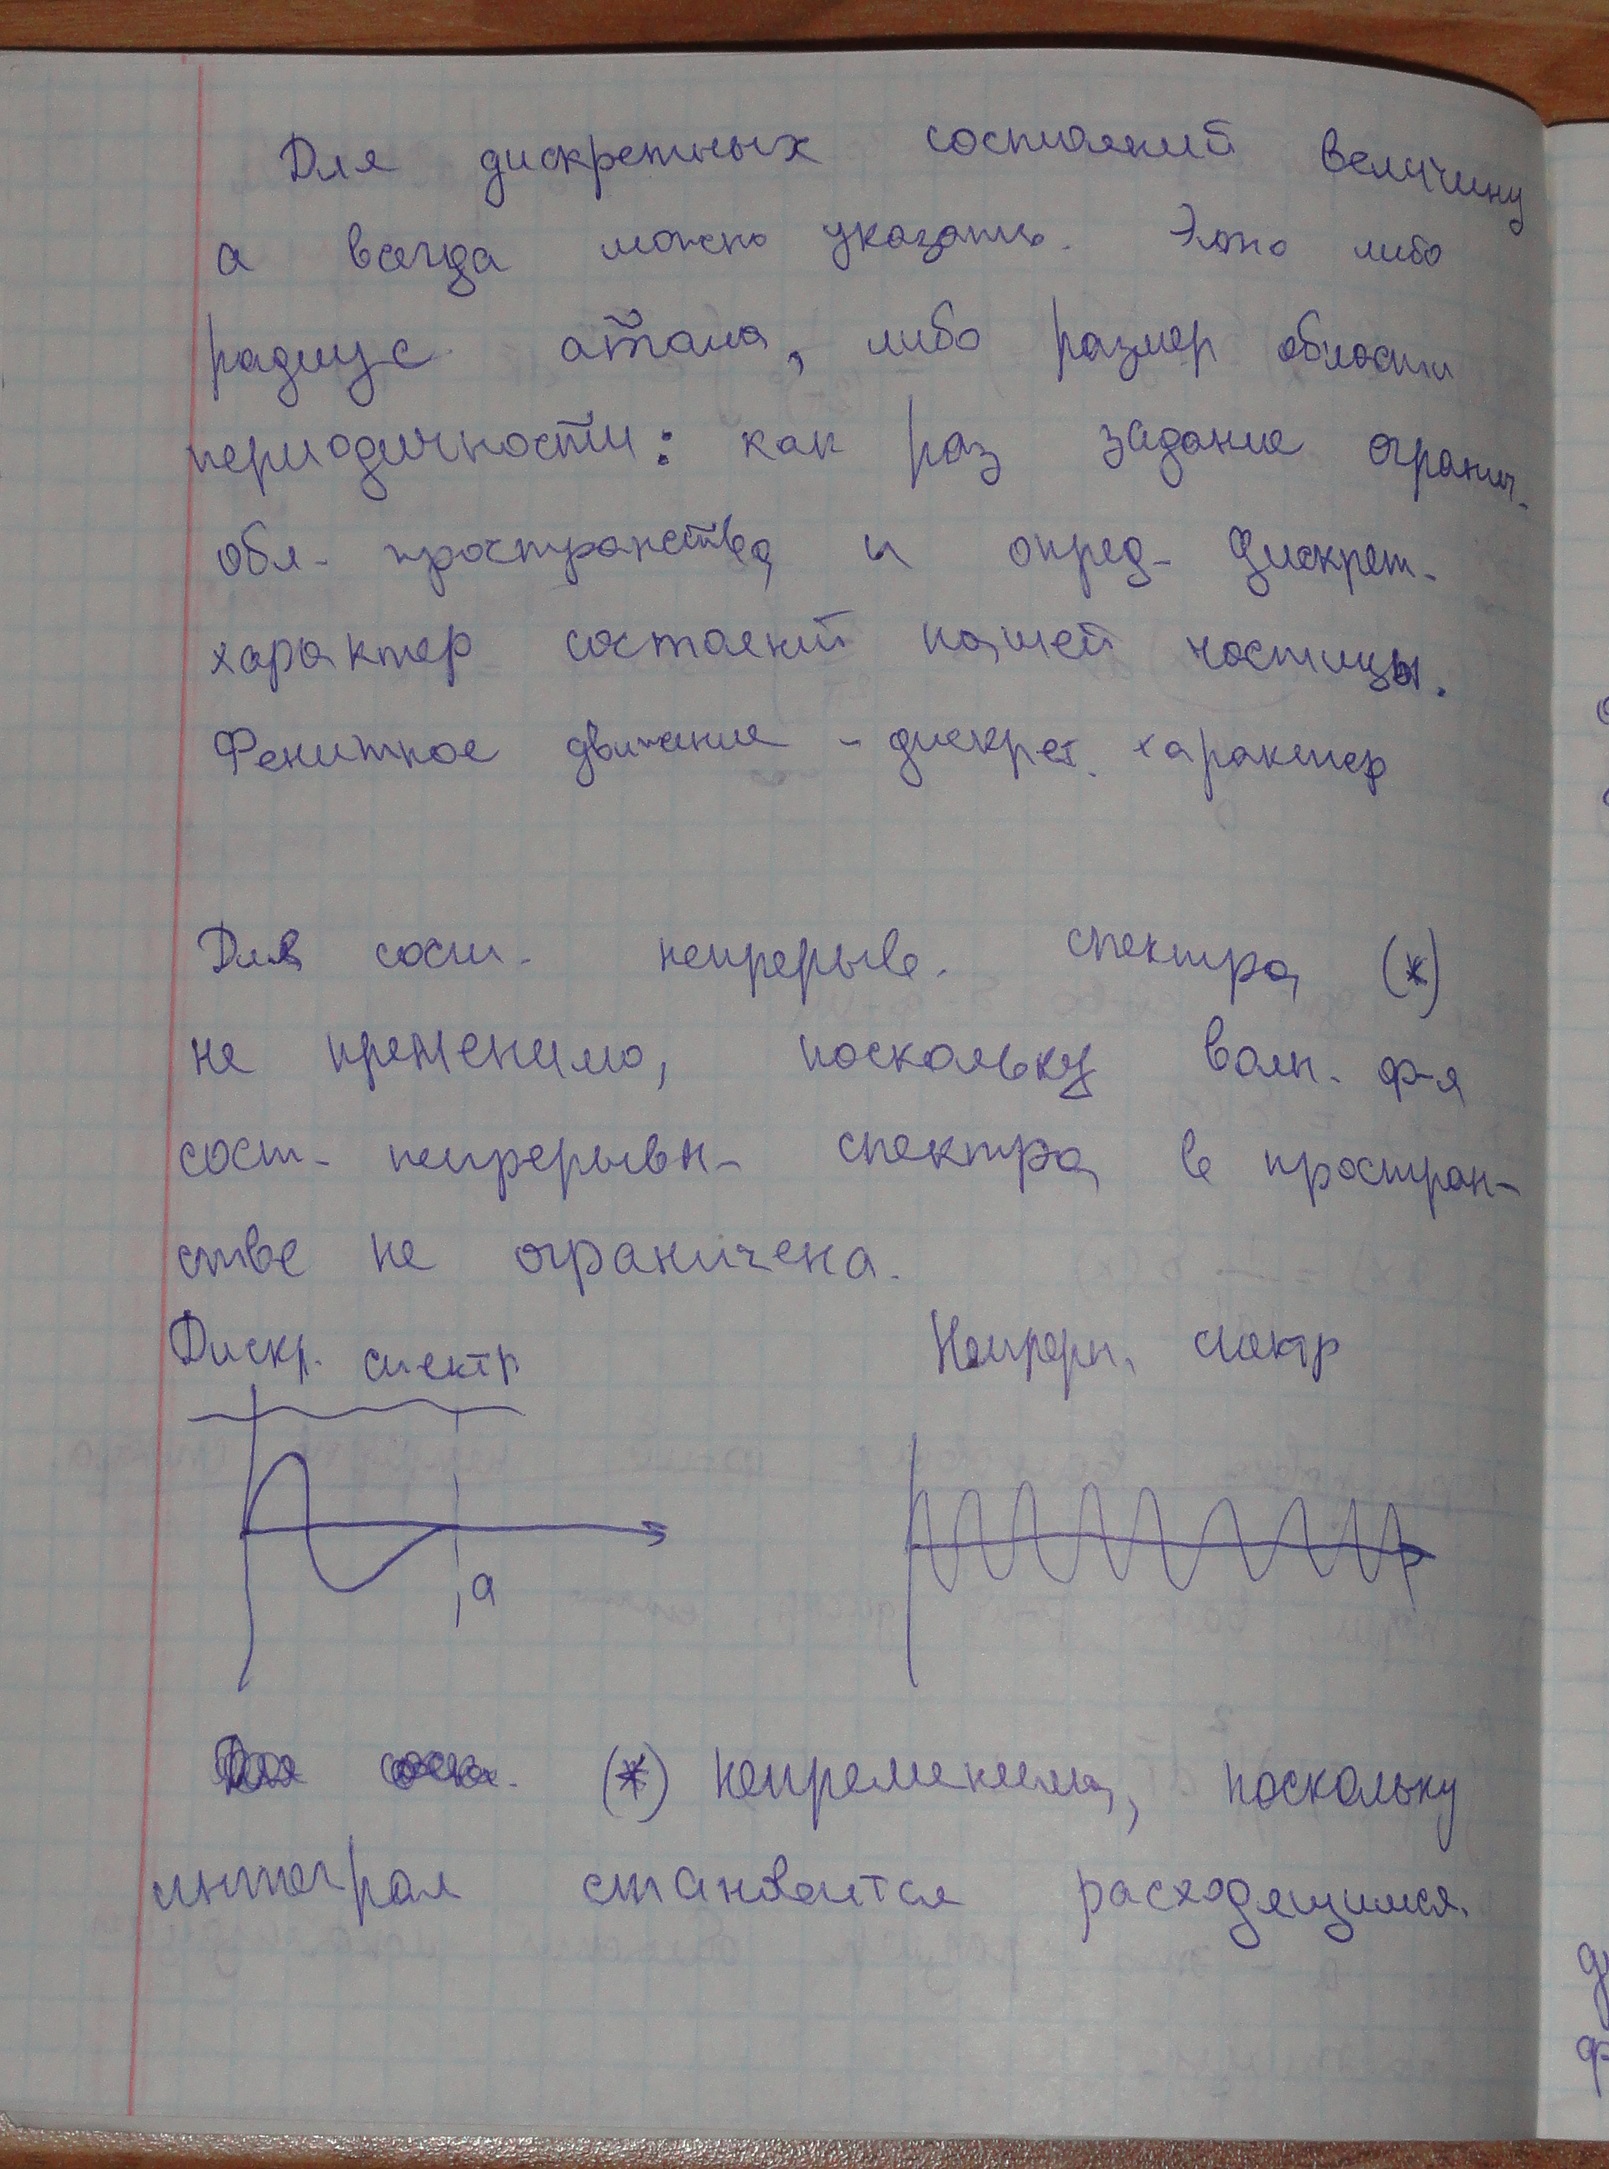 Для дискретных состояний величину
а всегда можно указать. Это либо
радиус атома, либо размер области
периодичности: как раз задание огранич.
обл. пространства и опред. дискрет.
характер состояний нашей частицы.
Фенитное движение - дискрет. характер
Для сост. непрерывв. спектра (*)
не пременимо, поскольку волн. ф-я
сост. непрерывн. спектра в простран-
стве не ограничена.
Дискр. спектр
Непрерн. спектр
a
(*) непременима, поскольку
интеграл становится расходящимся.